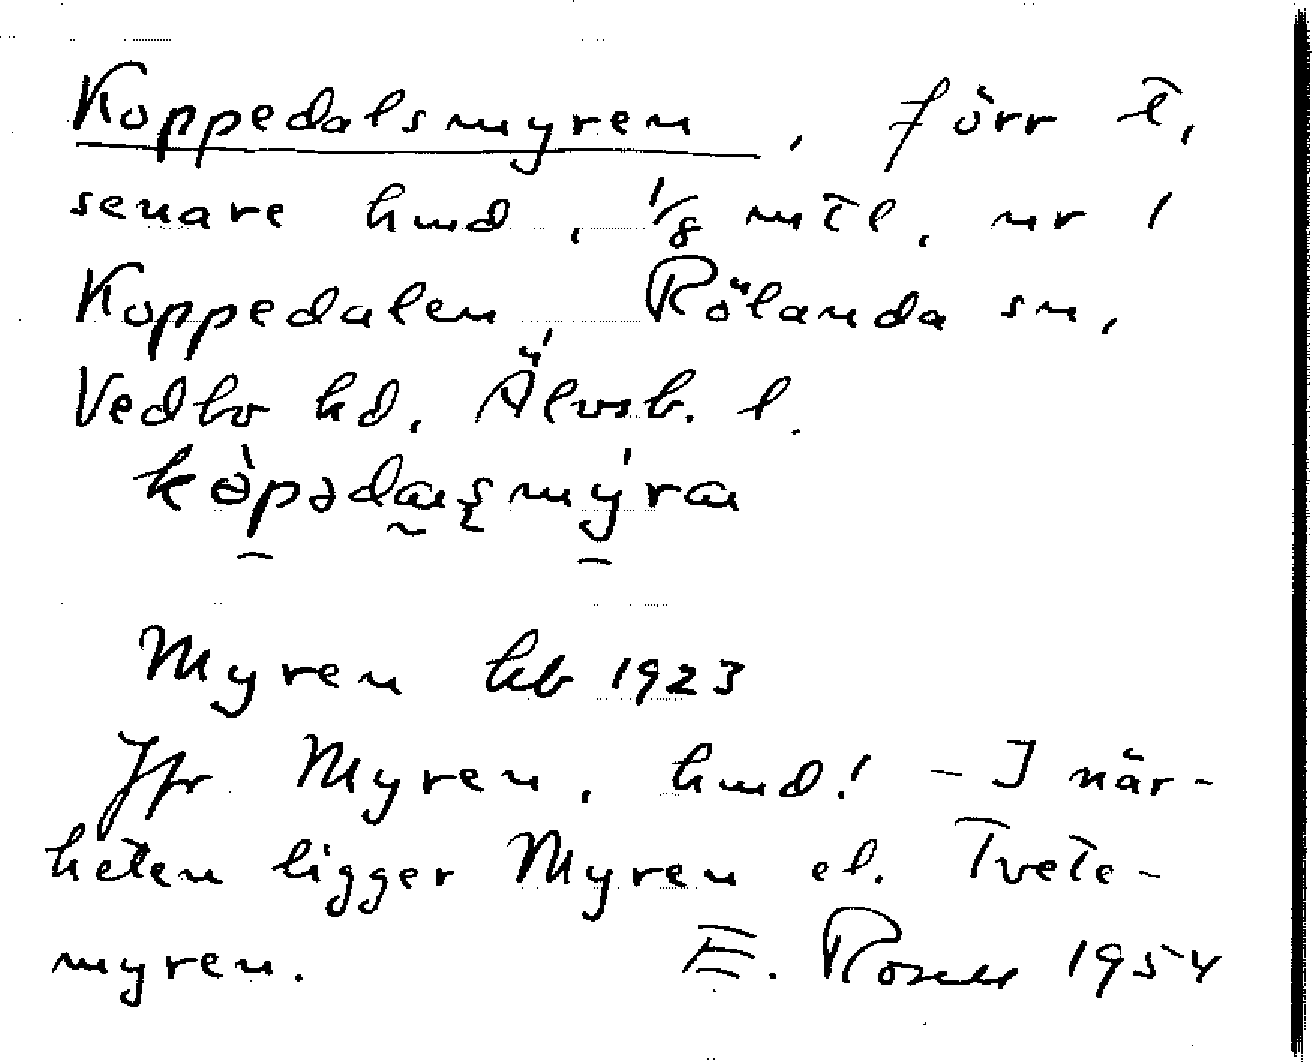 Koppedalsmyren, förr t,
senare hmd, 1/8 mtl, nr 1
Koppedalen, Rölanda sn,
Vedbo hd, Älvsb. l.
Myren kb 1923
Jfr Myren, hmd! - I när-
heten ligger Myren el. Tvete-
myren. E. Rosell 1954